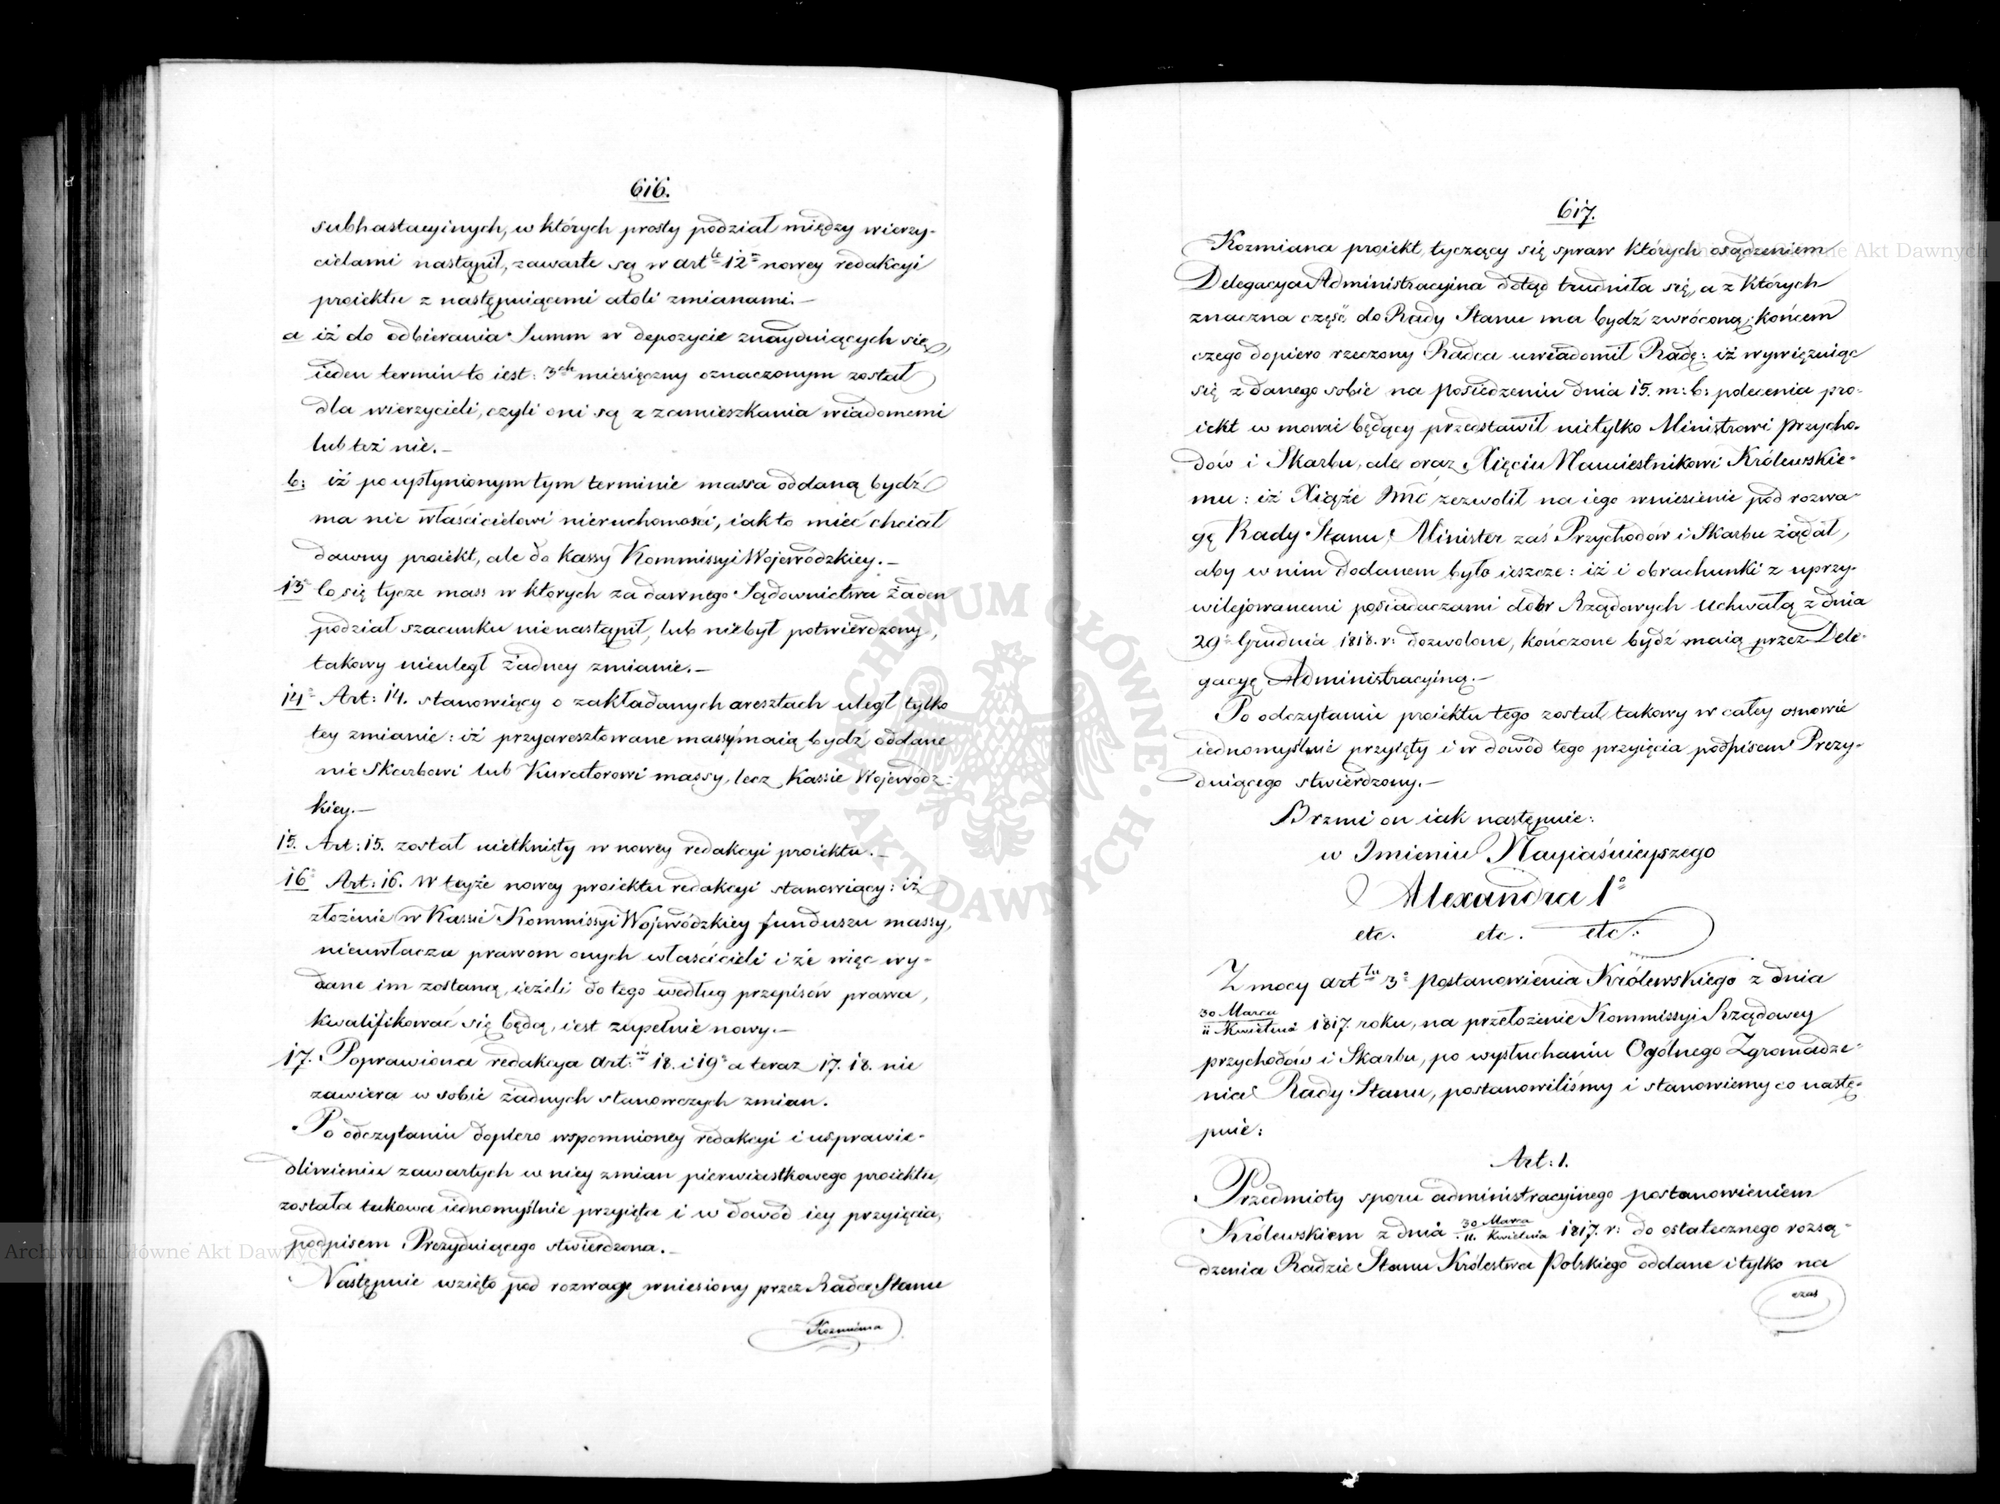 616.
subhastacyinych, w których prosty podział między wierzy-
cielami nastąpił, zawarte są w art.le 12° nowey redakcyi
proiektu z następuiącemi atoli zmianami.-
a iż do odbierania Summ w depozycie znayduiących się,
ieden termin to iest: 3ch miesięczny oznaczonym został
dla wierzycieli, czyli oni są z zamieszkania wiadomemi
lub też nie.-
b: iż po upłynionym tym terminie massa oddaną bydź
ma nie właścicielowi nieruchomości, iak to mieć chciał
dawny proiekt, ale do Kassy Kommissyi Wojewódzkiey.-
13° Co się tycze mass w których za dawnego Sądownictwa żaden
podział szacunku nienastąpił, lub niebył potwierdzony,
takowy nieuległ żadney zmianie.-
14° Art: 14. stanowiący o zakładanych aresztach uległ tylko
tey zmianie: iż przyaresztowane massy maią bydź oddane
nie Skarbowi lub Kuratorowi massy, lecz Kassie Wojewódz-
kiey.-
15. Art: 15. został nietknięty w nowey redakcyi proiektu.-
16° Art: 16. w teyże nowey proiektu redakcyi stanowiący: iż
złożenie w Kassie Kommissyi Wojewódzkiey funduszu massy,
nieuwłacza prawom onych właścicieli i że więc wy-
dane im zostaną, ieżeli do tego według przepisów prawa,
kwalifikować się będą, iest zupełnie nowy.-
17. Poprawiona redakcya art: 18. i 19° a teraz 17. 18. nie
zawiera w sobie żadnych stanowczych zmian.
Po odczytaniu dopiero wspomnioney redakcyi i usprawie-
dliwieniu zawartych w niey zmian pierwiastkowego proiektu,
została takowa iednomyślnie przyięta i w dowód iey przyięcia,
podpisem Prezyduiącego stwierdzona.-
Następnie wzięto pod rozwagę wniesiony przez Radcę Stanu
Kozmiana
617.
Kozmiana proiekt, tyczący się spraw których osądzeniem
Delegacya Administracyina dotąd trudniła się, a z których
znaczna część do Rady Stanu ma bydź zwróconą; końcem
czego dopiero rzeczony Radca uwiadomił Radę: iż wywięzuiąc
się z danego sobie na posiedzeniu dnia 15. m: b: polecenia pro-
iekt w mowie będący przedstawił nietylko Ministrowi Przycho-
dów i Skarbu, ale oraz Xięciu Namiestnikowi Królewskie-
mu: iż Xiąże Jmć zezwolił na iego wniesienie pod rozwa-
gę Rady Stanu, Minister zaś Przychodów i Skarbu żądał,
aby w nim dodanem było ieszcze: iż i obrachunki z uprzy-
wilejowanemi posiadaczami dóbr Rządowych Uchwałą z dnia
29° Grudnia 1818. r: dozwolone, kończone bydź maią przez Dele-
gacyę Administracyiną.-
Po odczytaniu proiektu tego został takowy w całey osnowie
iednomyślnie przyięty i w dowód tego przyięcia podpisem Prezy-
duiącego stwierdzony.-
Brzmi on iak następuie:
w Imieniu Nayiaśnieyszego
Alexandra I°
etc. etc. etc.
Z mocy art.lu 3° postanowienia Królewskiego z dnia
30 Marca
11 Kwietnia 1817. roku, na przełożenie Kommissyi Rządowey
przychodów i Skarbu, po wysłuchaniu Ogólnego Zgromadze-
nia Rady Stanu, postanowiliśmy i stanowiemy co nastę-
puie:
Art: 1.
Przedmioty sporu administracyinego postanowieniem
Królewskiem z dnia 30 Marca / 11. Kwietnia 1817. r: do ostatecznego rozsą-
dzenia Radzie Stanu Królestwa Polskiego oddane i tylko na
czas
ARCHIWUM GŁÓWNE AKT DAWNYCH
Archiwum Główne Akt Dawnych